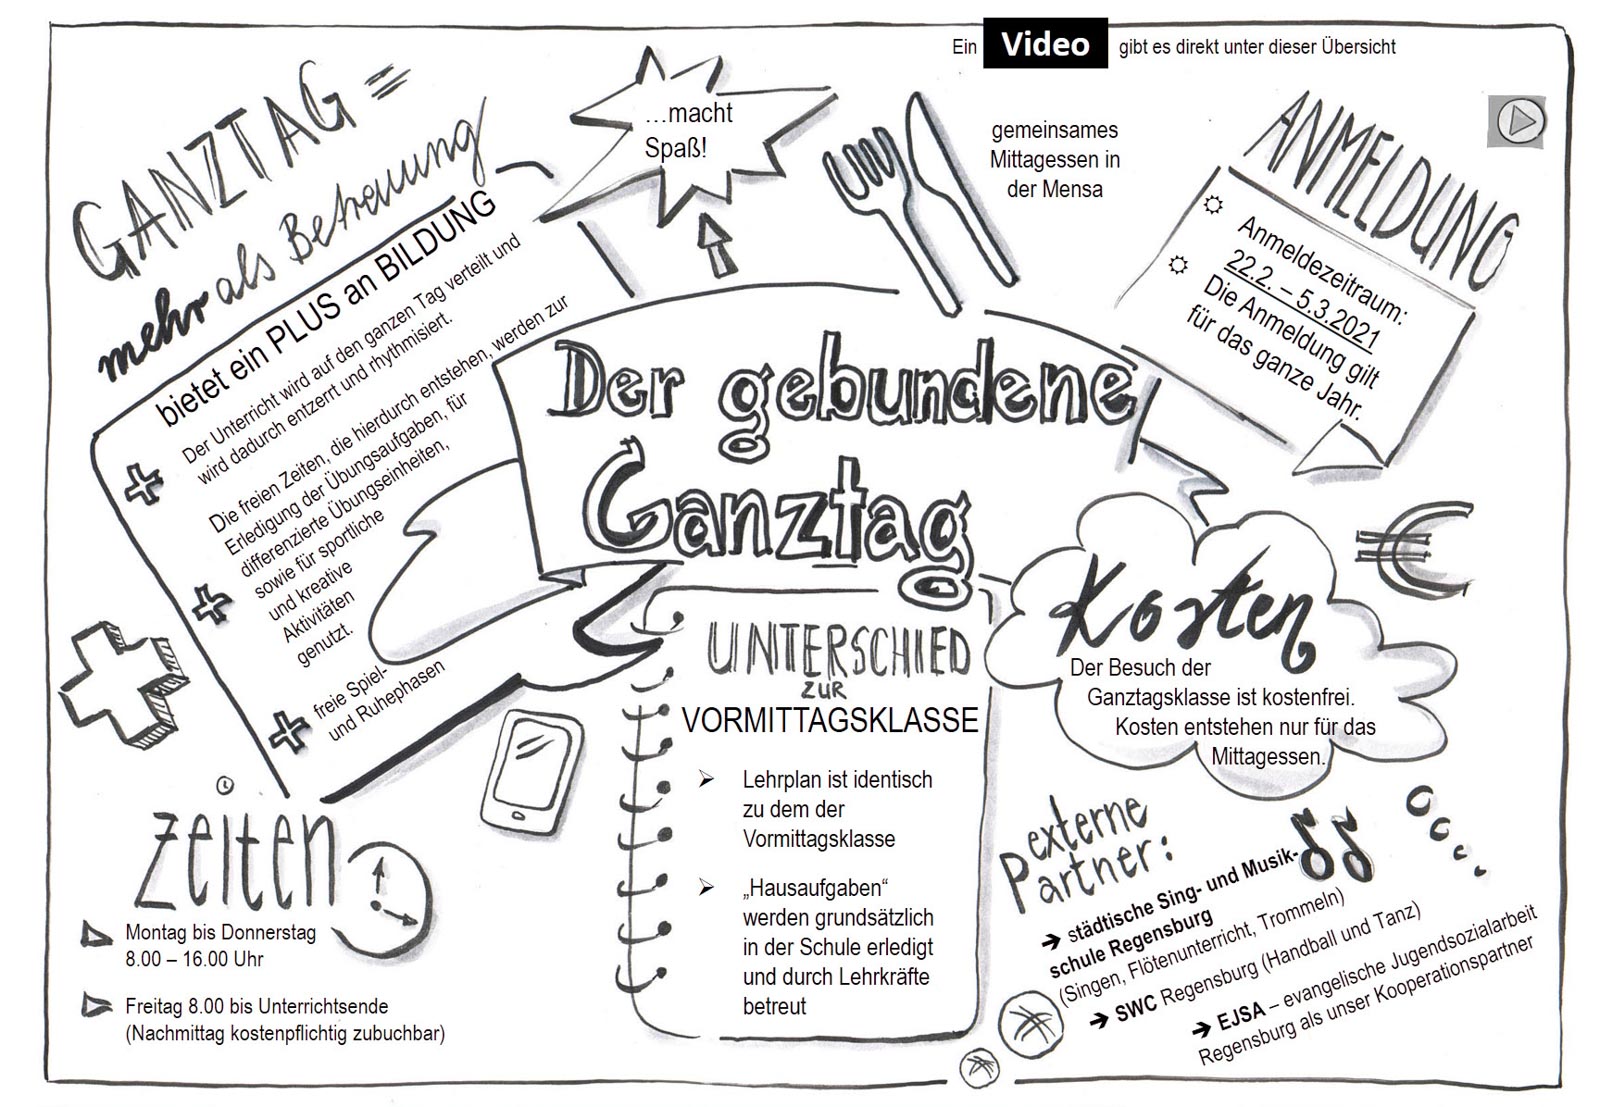 Ein Video gibt es direkt unter dieser Übersicht
GANZTAG =
mehr als Betreuung
bietet ein PLUS an BILDUNG
Der Unterricht wird auf den ganzen Tag verteilt und
wird dadurch entzerrt und rhythmisiert.
Die freien Zeiten, die hierdurch entstehen, werden zur
Erledigung der Übungsaufgaben, für
differenzierte Übungseinheiten,
sowie für sportliche
und kreative
Aktivitäten
genutzt.
freie Spiel-
und Ruhephasen
...macht
Spaß!
gemeinsames
Mittagessen in
der Mensa
ANMELDUNG
Anmeldezeitraum:
22.2. – 5.3.2021
Die Anmeldung gilt
für das ganze Jahr.
Der gebundene
Ganztag
UNTERSCHIED
ZUR
VORMITTAGSKLASSE
Lehrplan ist identisch
zu dem der
Vormittagsklasse
„Hausaufgaben“
werden grundsätzlich
in der Schule erledigt
und durch Lehrkräfte
betreut
€
Kosten
Der Besuch der
Ganztagsklasse ist kostenfrei.
Kosten entstehen nur für das
Mittagessen.
Zeiten
Montag bis Donnerstag
8.00 – 16.00 Uhr
Freitag 8.00 bis Unterrichtsende
(Nachmittag kostenpflichtig zubuchbar)
externe
Partner:
➔ städtische Sing- und Musik-
schule Regensburg
(Singen, Flötenunterricht, Trommeln)
➔ SWC Regensburg (Handball und Tanz)
➔ EJSA – evangelische Jugendsozialarbeit
Regensburg als unser Kooperationspartner